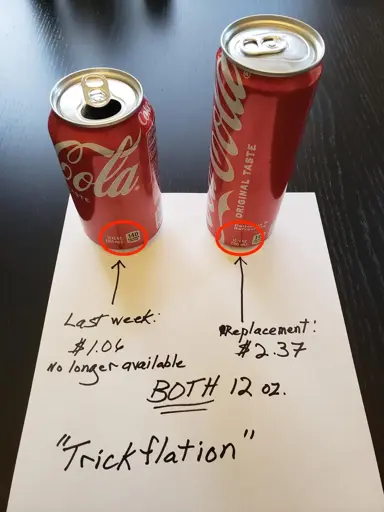 Cola
Cola
ORIGINAL TASTE
140
Last week:
$1.06
No longer available
Replacement:
$2.37
BOTH 12 oz.
"Trickflation"